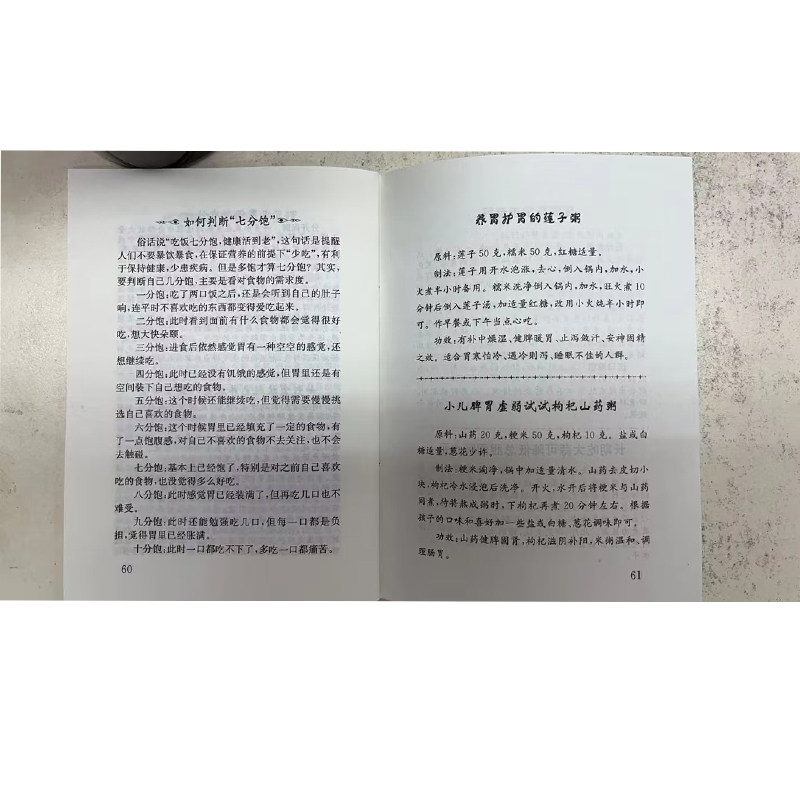 如何判断“七分饱”
俗话说“吃饭七分饱,健康活到老”,这句话是提醒
人们不要暴饮暴食,在保证营养的前提下“少吃”,有利
于保持健康,少患疾病。但是多饱才算七分饱?其实,
要判断自己几分饱,主要是看对食物的需求度。
一分饱:吃了两口饭之后,还是会听到自己的肚子
响,连平时不喜欢吃的东西都变得爱吃起来。
二分饱:此时看到面前有什么食物都会觉得很好
吃,想大快朵颐。
三分饱:进食后依然感觉胃有一种空空的感觉,还
想继续吃。
四分饱:此时已经没有饥饿的感觉,但胃里还是有
空间装下自己想吃的食物。
五分饱:这个时候还能继续吃,但觉得需要慢慢挑
选自己喜欢的食物。
六分饱:这个时候胃里已经填充了一定的食物,有
了一点饱腹感,对自己不喜欢的食物不去关注,也不会
去触碰。
七分饱:基本上已经饱了,特别是对之前自己喜欢
吃的食物,也没觉得多么好吃。
八分饱:此时感觉胃已经装满了,但再吃几口也不
难受。
九分饱:此时还能勉强吃几口,但每一口都是负
担,觉得胃里已经胀满。
十分饱:此时一口都吃不下了,多吃一口都痛苦。
60
养胃护胃的莲子粥
原料:莲子 50 克,糯米 50 克,红糖适量。
制法:莲子用开水泡涨,去心,倒入锅内,加水,小
火煮半小时备用。糯米洗净倒入锅内,加水,旺火煮 10
分钟后倒入莲子汤,加适量红糖,改用小火烧半小时即
可。作早餐或下午当点心吃。
功效:有补中燥湿、健脾暖胃、止泻敛汗、安神固精
之效。适合胃寒怕冷、遇冷则泻、睡眠不佳的人群。
小儿脾胃虚弱试试枸杞山药粥
原料:山药 20 克,粳米 50 克,枸杞 10 克。盐或白
糖适量,葱花少许。
制法:粳米淘净,锅中加适量清水。山药去皮切小
块,枸杞冷水浸泡后洗净。开火,水开后将粳米与山药
同煮,待将熬成粥时,下枸杞再煮 20 分钟左右。根据
孩子的口味和喜好加一些盐或白糖、葱花调味即可。
功效:山药健脾固肾,枸杞滋阴补阳,米粥温和、调
理肠胃。
61